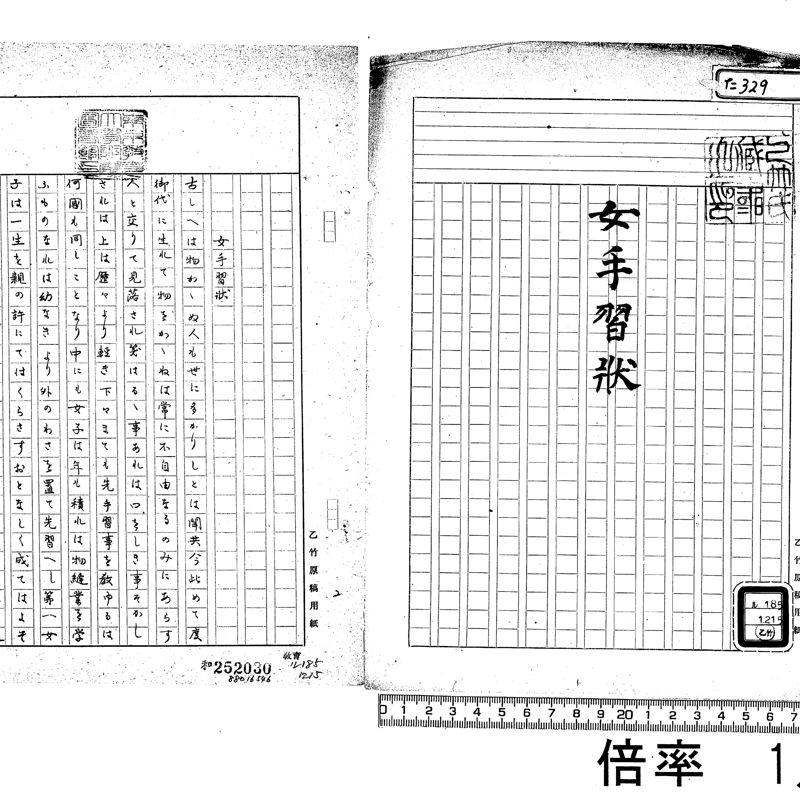 タ=329
女手習状
ル185
1215
(乙竹)
乙竹原稿用紙
女手習状
古しへは物わ丶ぬ人も世に多かりしとは聞共今此めて度
御代に生れて物をかゝねは常に不自由なるのみにあらす
人と立りて見落され笑はるゝ事あれは口をしき事そかし
されは上は歴々より軽き下々まても先手習事を教ゆるは
何國も同しことなり中にも女子は年も積れは物縫業を学
ふものなれは幼なきより外のわさを置て先習へし第一女
子は一生を親の許にてはくらさすおとなしく成てはよそ
乙竹原稿用紙
2
教育
ル185
1215
和252030
88016546
0 1 2 3 4 5 6 7 8 9 20 1 2 3 4 5 6 7
倍率 1